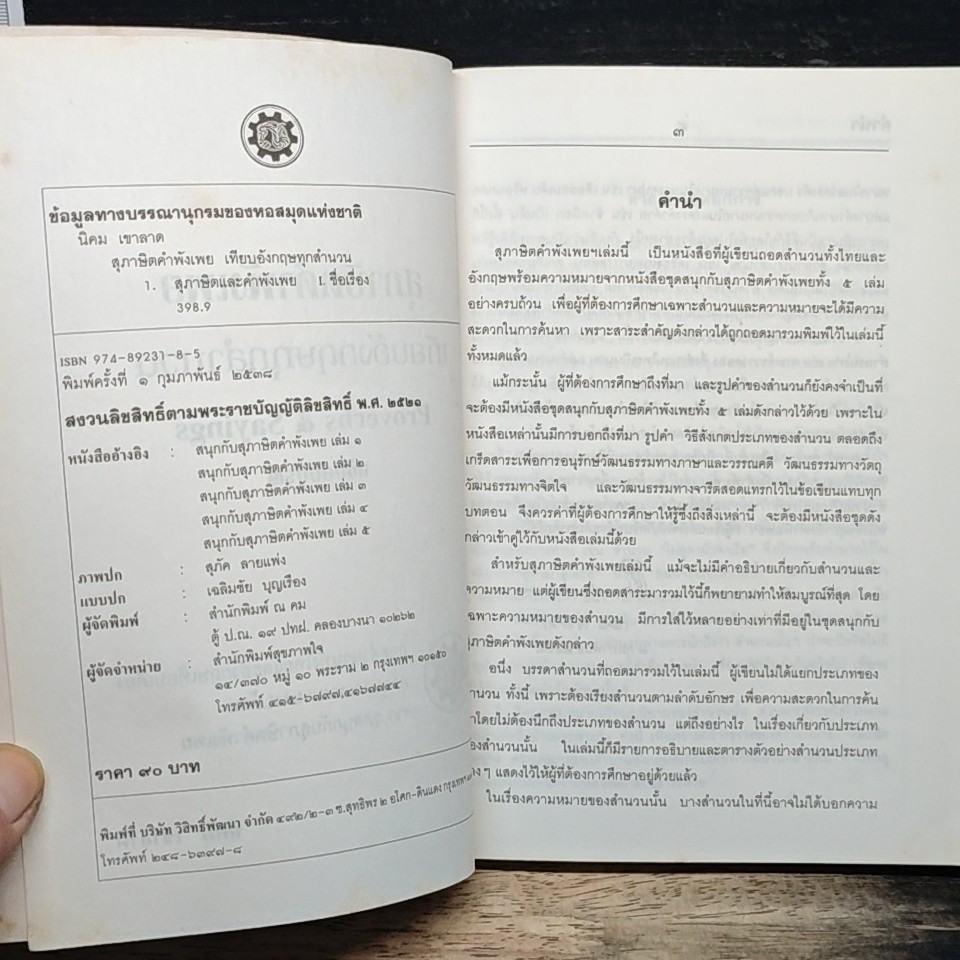 ข้อมูลทางบรรณานุกรมของหอสมุดแห่งชาติ
นิคม เขาลาด
สุภาษิตคำพังเพย เทียบอังกฤษทุกสำนวน
1. สุภาษิตและคำพังเพย I. ชื่อเรื่อง
398.9
ISBN 974-89231-8-5
พิมพ์ครั้งที่ ๑ กุมภาพันธ์ ๒๕๓๘
สงวนลิขสิทธิ์ตามพระราชบัญญัติลิขสิทธิ์ พ.ศ. ๒๕๒๑
หนังสืออ้างอิง : สนุกกับสุภาษิตคำพังเพย เล่ม ๑
สนุกกับสุภาษิตคำพังเพย เล่ม ๒
สนุกกับสุภาษิตคำพังเพย เล่ม ๓
สนุกกับสุภาษิตคำพังเพย เล่ม ๔
สนุกกับสุภาษิตคำพังเพย เล่ม ๕
ภาพปก : สุภัค ลายแพ่ง
แบบปก : เฉลิมชัย บุญเรือง
ผู้จัดพิมพ์ : สำนักพิมพ์ ณ คม
ตู้ ป.ณ. ๑๙ ปทฝ. คลองบางนา ๑๐๒๖๒
ผู้จัดจำหน่าย : สำนักพิมพ์สุขภาพใจ
๑๔/๓๗๐ หมู่ ๑๐ พระราม ๒ กรุงเทพฯ ๑๐๑๕๐
โทรศัพท์ ๔๑๕-๖๗๙๗,๔๑๖๗๗๔๔
ราคา ๙๐ บาท
พิมพ์ที่ บริษัท วิสิทธิ์พัฒนา จำกัด ๔๙๒/๒-๓ ซ.สุทธิพร ๒ อโศก-ดินแดง กรุงเทพฯ
โทรศัพท์ ๒๔๘-๖๓๙๗-๘
๓
คำนำ
สุภาษิตคำพังเพยฯเล่มนี้ เป็นหนังสือที่ผู้เขียนถอดสำนวนทั้งไทยและ
อังกฤษพร้อมความหมายจากหนังสือชุดสนุกกับสุภาษิตคำพังเพยทั้ง ๕ เล่ม
อย่างครบถ้วน เพื่อผู้ที่ต้องการศึกษาเฉพาะสำนวนและความหมายจะได้มีความ
สะดวกในการค้นหา เพราะสาระสำคัญดังกล่าวได้ถูกถอดมารวมพิมพ์ไว้ในเล่มนี้
ทั้งหมดแล้ว
แม้กระนั้น ผู้ที่ต้องการศึกษาถึงที่มา และรูปคำของสำนวนก็ยังคงจำเป็นที่
จะต้องมีหนังสือชุดสนุกกับสุภาษิตคำพังเพยทั้ง ๕ เล่มดังกล่าวไว้ด้วย เพราะใน
หนังสือเหล่านั้นมีการบอกถึงที่มา รูปคำ วิธีสังเกตประเภทของสำนวน ตลอดถึง
เกร็ดสาระเพื่อการอนุรักษ์วัฒนธรรมทางภาษาและวรรณคดี วัฒนธรรมทางวัตถุ
วัฒนธรรมทางจิตใจ และวัฒนธรรมทางจารีตสอดแทรกไว้ในข้อเขียนแทบทุก
บทตอน จึงควรค่าที่ผู้ต้องการศึกษาให้รู้ซึ้งถึงสิ่งเหล่านี้ จะต้องมีหนังสือชุดดัง
กล่าวเข้าคู่ไว้กับหนังสือเล่มนี้ด้วย
สำหรับสุภาษิตคำพังเพยเล่มนี้ แม้จะไม่มีคำอธิบายเกี่ยวกับสำนวนและ
ความหมาย แต่ผู้เขียนซึ่งถอดสาระมารวมไว้นี้ก็พยายามทำให้สมบูรณ์ที่สุด โดย
เฉพาะความหมายของสำนวน มีการใส่ไว้หลายอย่างเท่าที่มีอยู่ในชุดสนุกกับ
สุภาษิตคำพังเพยดังกล่าว
อนึ่ง บรรดาสำนวนที่ถอดมารวมไว้ในเล่มนี้ ผู้เขียนไม่ได้แยกประเภทของ
สำนวน ทั้งนี้ เพราะต้องเรียงสำนวนตามลำดับอักษร เพื่อความสะดวกในการค้น
หาโดยไม่ต้องนึกถึงประเภทของสำนวน แต่ถึงอย่างไร ในเรื่องเกี่ยวกับประเภท
ของสำนวนนั้น ในเล่มนี้ก็มีรายการอธิบายและตารางตัวอย่างสำนวนประเภท
ต่าง ๆ แสดงไว้ให้ผู้ที่ต้องการศึกษาอยู่ด้วยแล้ว
ในเรื่องความหมายของสำนวนนั้น บางสำนวนในที่นี้อาจไม่ได้บอกความ